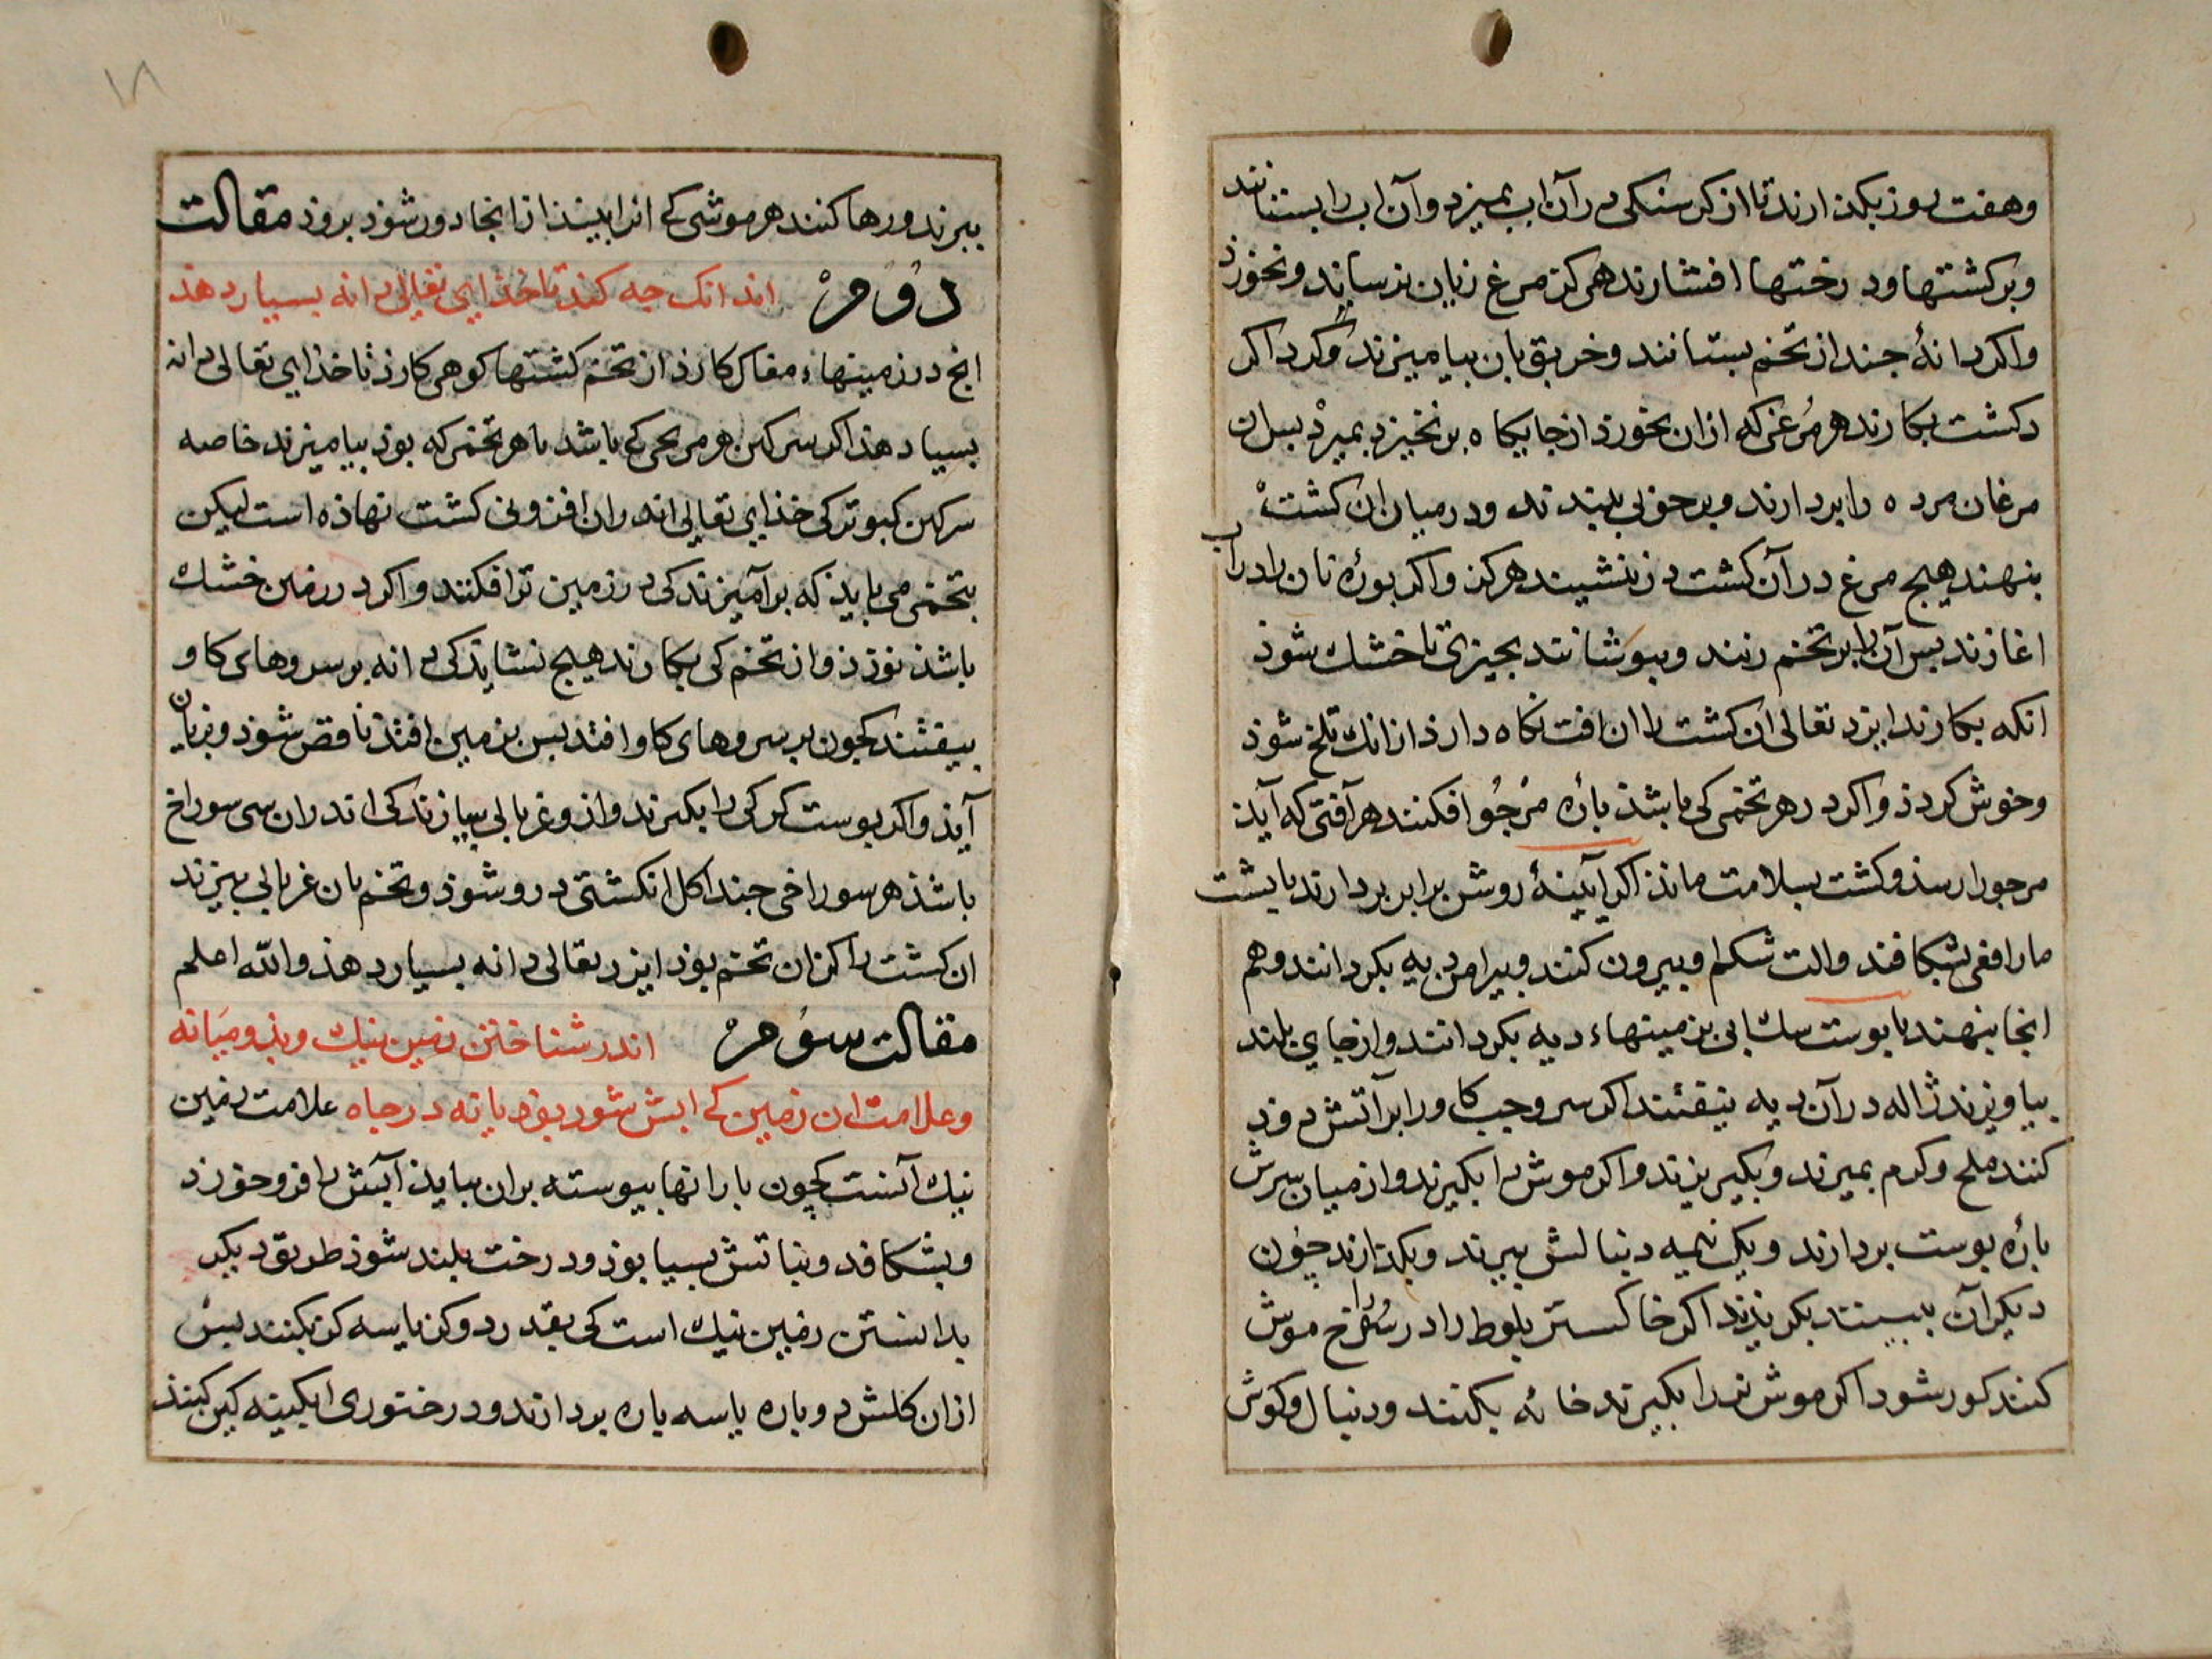 وهفت روز بکذارند تا از کرسنکی در آن اب بمیرد وآن اب را بستانند
وبر کشتها ودرختها افشارند هرکز مرغ زیان نرساند ونخورذ
واکر دانهٔ جند از تخم بستانند وخربق بان بیامیزند وکرداکر
دکشت بکارند هر مُرغی که ازان بخورذ از جایکاه برنخیزد بمیرْد بس ان
مرغان مرده را بردارند وبرجوبی بندند ودر میان ان کشتْ
بنهند هیج مرغ در آن کشت در ننشیند هرکز واکر بورهٔ نان را در آب
اغازند بس آن را بر تخم زنند وببوشانند بجیزی تا خشك شوذ
انکه بکارند ایزد تعالی ان کشت را ازافت نکاه دارذ ازانك تلخ شوذ
وخوش کردذ واکر در هر تخمی کی باشذ بارهٔ مُرجُوا فکنند هر آفتی که آیذ
مرجورا رسذ وکشت بسلامت ماند اکر آیینهٔ روشن برابر بردارند یا پشت
مار افعی بشکافند والت شکم او بیرون کنند وبیرامن دیه بکردانند وهم
انجا بنهند یا بوست سك ابی بزمینهاء دیه بکردانند واز جای بلند
بیاویزند ژاله در آن دیه نیفتند اکر سرو جب کاو را بر آتش دوذ
کنند ملخ وکرم بمیرند وبکیریزند واکر موش را بکیرند واز میان سرش
بارهٔ بوست بردارند ویك نیمه دنبالش ببرند وبکذارند چون
دیکر آن ببینند بکریزند اکر خاکستر بلوط را در سُوراخ موش
کنند کور شود اکر موش نر را بکیرند خایه بکنند ودنبال وکوش
ببرند ورها کنند هر موشی کے انرا بیند از انجا دور شوذ بروذ مقالت
دوُمْ اند انك جه کنند تا خذاٮی تعالی دانه بسیار دهذ
انج در زمینهاء مفاك کارذ از تخم کشتها کوهی کارذ تا خذای تعالی دانه
بسیا دهذ اکر سرکین هر مرغی کی باشد با هر تخمی که بوذ بیامیزند خاصه
سرکین کبوتر کی خذای تعالی اندران افزونی کشت نهاذه است لیکن
بتخمی می بایذ که برآمیزند کی در زمین تر افکنند واکر در زمین خشك
باشذ نوزذ واز تخم کی بکارند هیج نشاید کی دانه بر سروهای کاو
بیفتند کجون بر سروهای کاو افتد بس بزمین افتد ناقص شوذ وبزیان
آیذ واکر بوست کرکی را بکیرند واز وغربالی بسازند کی اندران سی سوراخ
باشذ هر سوراخی جنداکل انکشتی در و شوذ وتخم بان غربالی بیزند
ان کشت را کزان تخم بوذ ایزد تعالی دانه بسیار دهذ والله اعلم
مقالت سوُمْ اندر شناختن زمین نیك وبذ ومیانه
وعلامت ان زمین کے ابش شور بوذ یا نه در جاه علامت زمین
نیك آنست کچون بارانها بیوسته بران بیایذ آبش را فرو خورذ
وبشکافد ونباتش بسیا بوذ ودرخت بلند شوذ طریق دیکر
بدانستن زمین نیك است کی بقدر دو کز یا سه کز بکنند بس
ازان کلش دو باره یا سه باره بردارند ودر خنوری ابکینه کین کنند